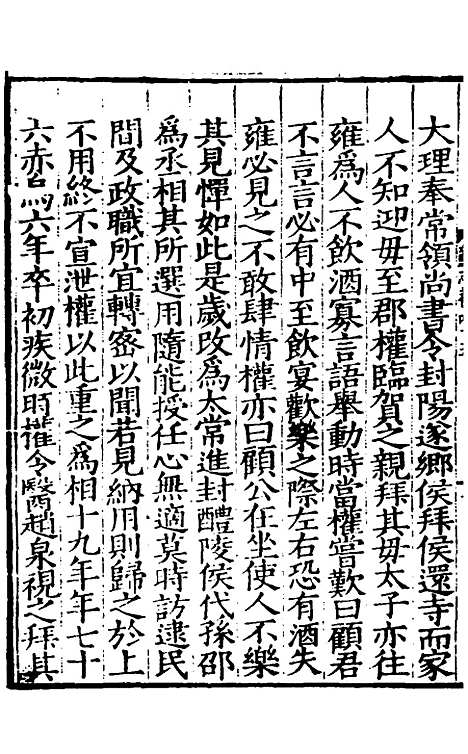 大理奉常領尚書令封陽遂鄉侯拜侯還寺而家
人不知迎毋至郡權臨賀之親拜其毋太子亦往
雍爲人不飲酒寡言語舉動時當權嘗歎曰顧君
不言言必有中至飲宴歡樂之際左右恐有酒失
雍必見之不敢肆情權亦曰顧公在坐使人不樂
其見憚如此是歲改爲太常進封醴陵侯代孫邵
爲丞相其所選用隨能授任心無適莫時訪逮民
間及政職所宜轉密以聞若見納用則歸之於上
不用終不宣泄權以此重之爲相十九年年七十
六赤烏六年卒初疾微時權令醫趙泉視之拜其